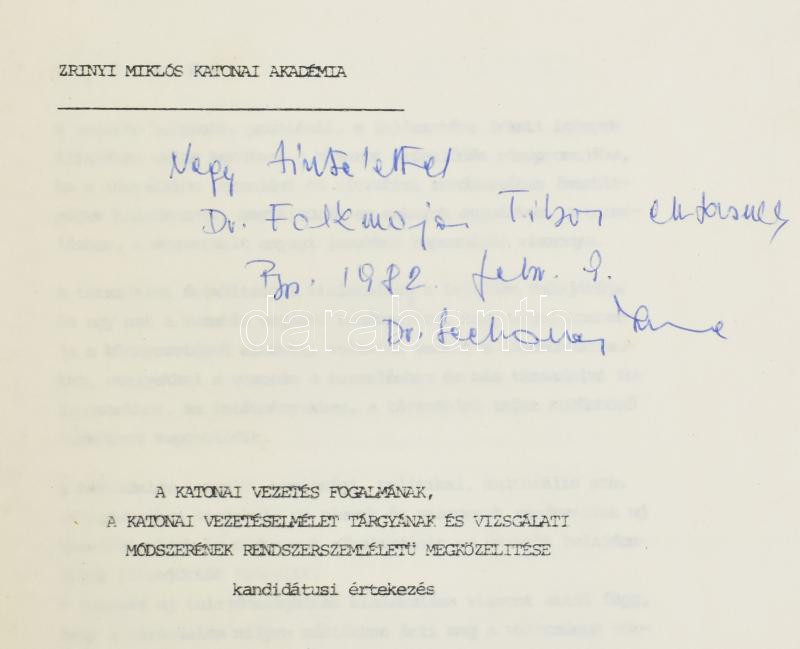 ZRINYI MIKLÓS KATONAI AKADÉMIA
Nagy tisztelettel
Dr. Tibor
Bp. 1982 febr. 9.
Dr.
darabanth
A KATONAI VEZETÉS FOGALMÁNAK,
A KATONAI VEZETÉSELMÉLET TÁRGYÁNAK ÉS VIZSGÁLATI
MÓDSZERÉNEK RENDSZERSZEMLÉLETŰ MEGKÖZELITÉSE
kandidátusi értekezés